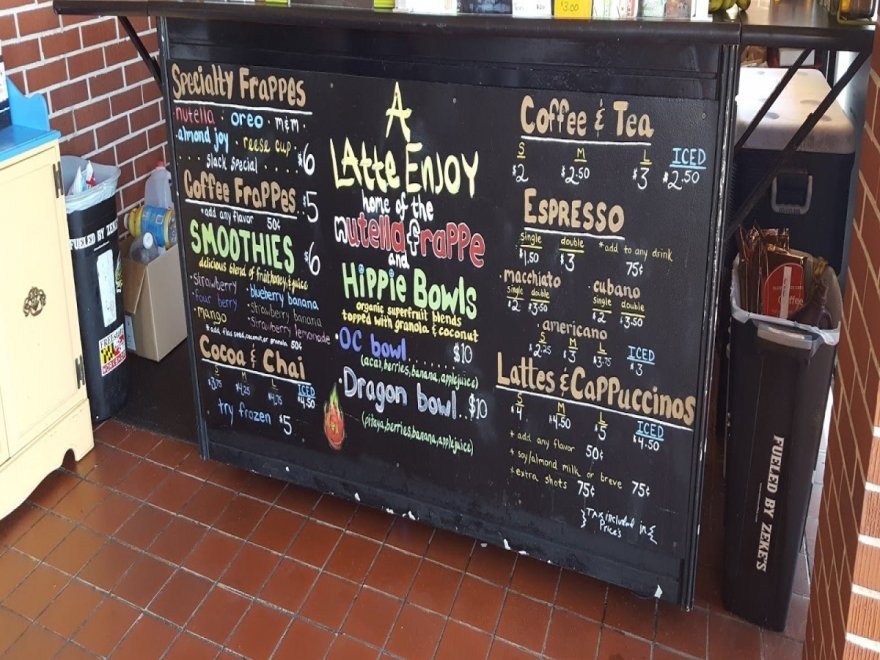 Specialty Frappes
nutella · oreo · m&m ·
· almond joy · reese cup ·
slack special . . . . $6
Coffee Frappes $5
*add any flavor 50¢
SMOOTHIES $6
delicious blend of fruit, honey, & juice
· strawberry · blueberry banana
· four berry · strawberry banana
· mango · strawberry lemonade
50¢
Cocoa & Chai
S M L ICED
$3.75 $4.25 $4.75 $4.50
try frozen $5
A
LAtte ENJOY
home of the
nutella frappe
and
Hippie Bowls
organic superfruit blends
topped with granola & coconut
· OC bowl . . . . . . . $10
(acai, berries, banana, apple juice)
· Dragon bowl . . $10
(pitaya, berries, banana, apple juice)
Coffee & Tea
S M L ICED
$2 $2.50 $3 $2.50
ESPRESSO
single double *add to any drink
$1.50 $3 75¢
· macchiato · cubano
single double single double
$2 $3.50 $2 $3.50
· americano
S M L ICED
$2.25 $3 $3.75 $3
Lattes & Cappuccinos
S M L ICED
$4 $4.50 $5 $4.50
* add any flavor 50¢
* soy/almond milk or breve 75¢
* extra shots 75¢
TAX included in
Prices
FUELED BY ZEKE'S
FUELED BY ZEKE'S
Coffee
$3.00